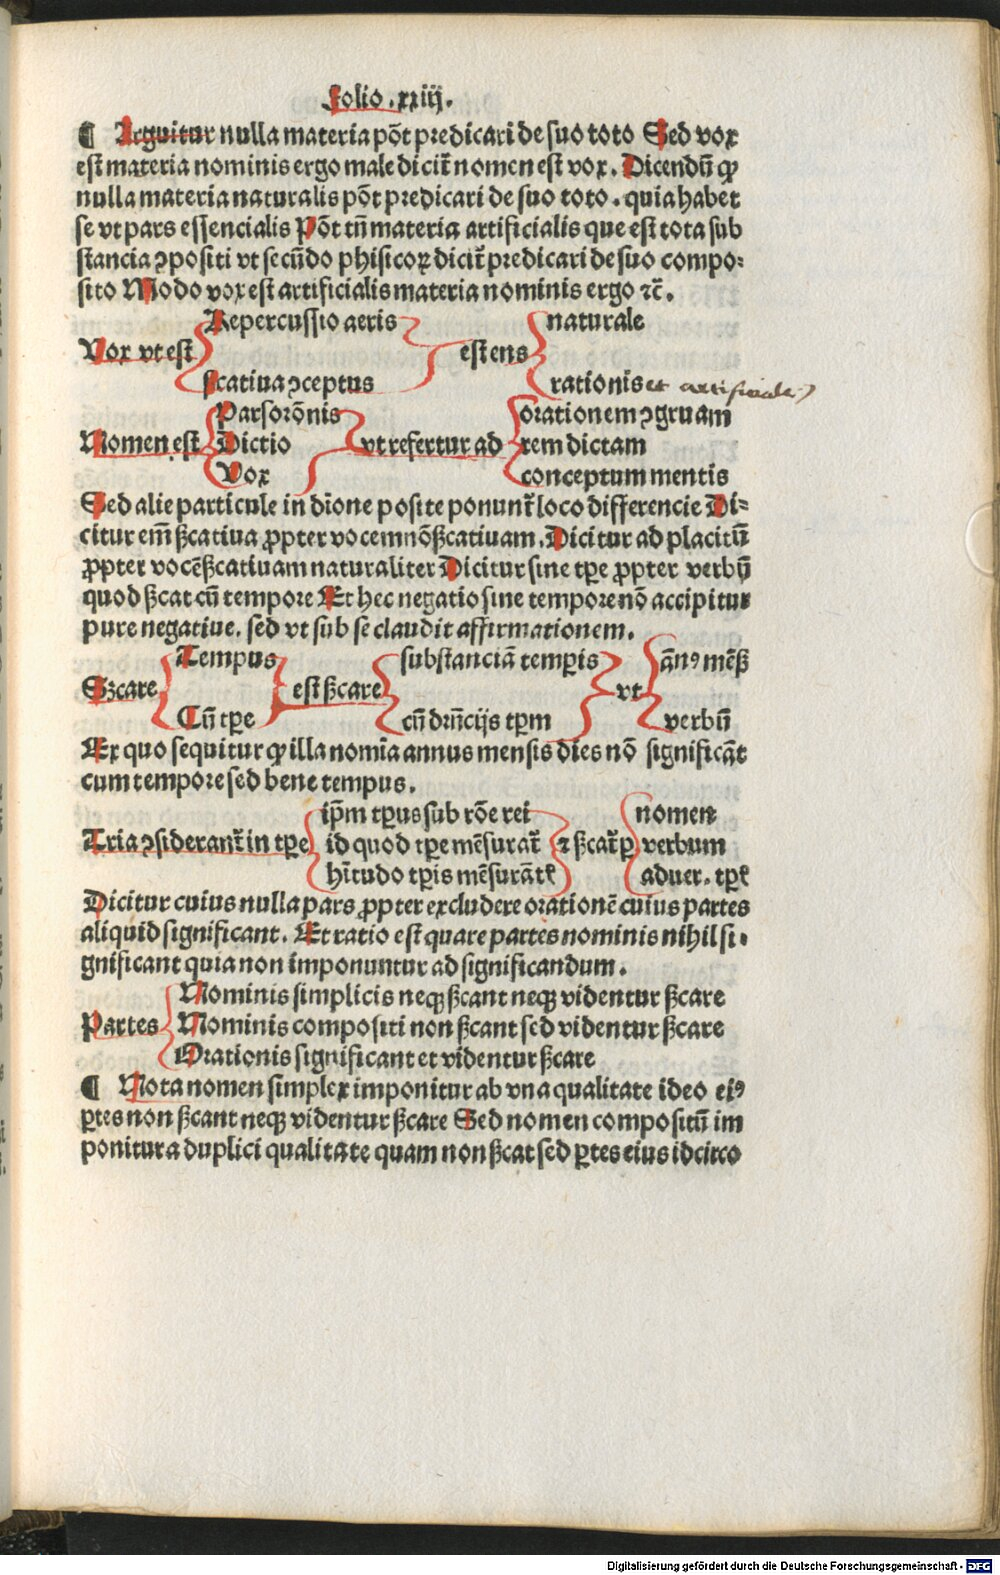 Folio .xxiij.
¶ Arguitur nulla materia põt predicari de suo toto Sed vox
est materia nominis ergo male dicit̃ nomen est vox. Dicendũ ꝙ
nulla materia naturalis põt predicari de suo toto . quia habet
se vt pars essencialis Põt tñ materia artificialis que est tota sub
stancia ꝯpositi vt secũdo phisicoꝝ dicit̃ predicari de suo compo⸗
sito Modo vox est artificialis materia nominis ergo ⁊c̃.
Repercussio aeris naturale
Vox vt est est ens
ſcatiua ꝯceptus rationis et artificiale
Pars orõnis orationem ꝯgruam
Nomen est Dictio vt refertur ad rem dictam
Vox conceptum mentis
Sed alie particule in diõne posite ponunt̃ loco differencie Di⸗
citur em̃ ßcatiua ꝓpter vocem nõ ßcatiuam. Dicitur ad placitũ
ꝓpter vocẽ ßcatiuam naturaliter Dicitur sine tꝑe ꝓpter verbũ
quod ßcat cũ tempore Et hec negatio sine tempore nõ accipitur
pure negatiue. sed vt sub se claudit affirmationem.
Tempus substanciã temꝑis ãnꝰ mẽß
Sꝫcare est ßcare vt
Cũ tꝑe cũ dr̃ncijs tꝑm verbũ
Ex quo sequitur ꝙ illa nomĩa annus mensis dies nõ significãt
cum tempore sed bene tempus.
ip̃m tꝑus sub rõe rei nomen
Tria ꝯsiderant̃ in tꝑe id quod tꝑe mẽsurat̃ ⁊ ßcat̃ ꝑ verbum
hĩtudo tꝑis mẽsurãtꝭ aduer. tꝑꝭ
Dicitur cuius nulla pars ꝓpter excludere orationẽ cuius partes
aliquid significant. Et ratio est quare partes nominis nihil si⸗
gnificant quia non imponuntur ad significandum.
Nominis simplicis neqꝫ ßcant neqꝫ videntur ßcare
Partes Nominis compositi non ßcant sed videntur ßcare
Orationis significant et videntur ßcare
¶ Nota nomen simplex imponitur ab vna qualitate ideo eiꝰ
ꝑtes non ßcant neqꝫ videntur ßcare Sed nomen compositũ im
ponitur a duplici qualitate quam non ßcat sed ꝑtes eius idcirco
Digitalisierung gefördert durch die Deutsche Forschungsgemeinschaft - DFG